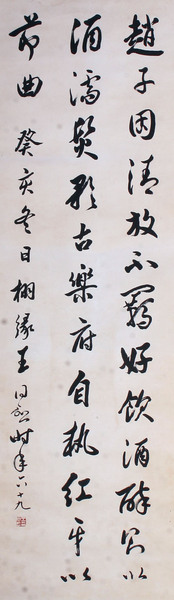 趙子固清放不羈好飲酒醉則以
酒濡髮歌古樂府自執紅牙以
節曲 癸亥冬日栩緣王同愈時年六十九